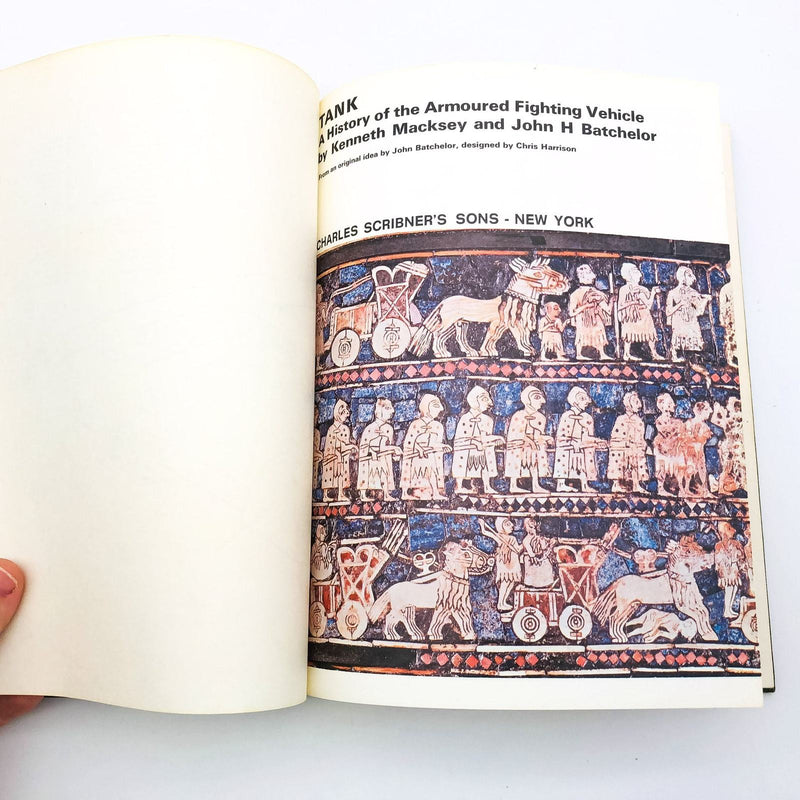 TANK
A History of the Armoured Fighting Vehicle
by Kenneth Macksey and John H Batchelor
From an original idea by John Batchelor, designed by Chris Harrison
CHARLES SCRIBNER'S SONS - NEW YORK